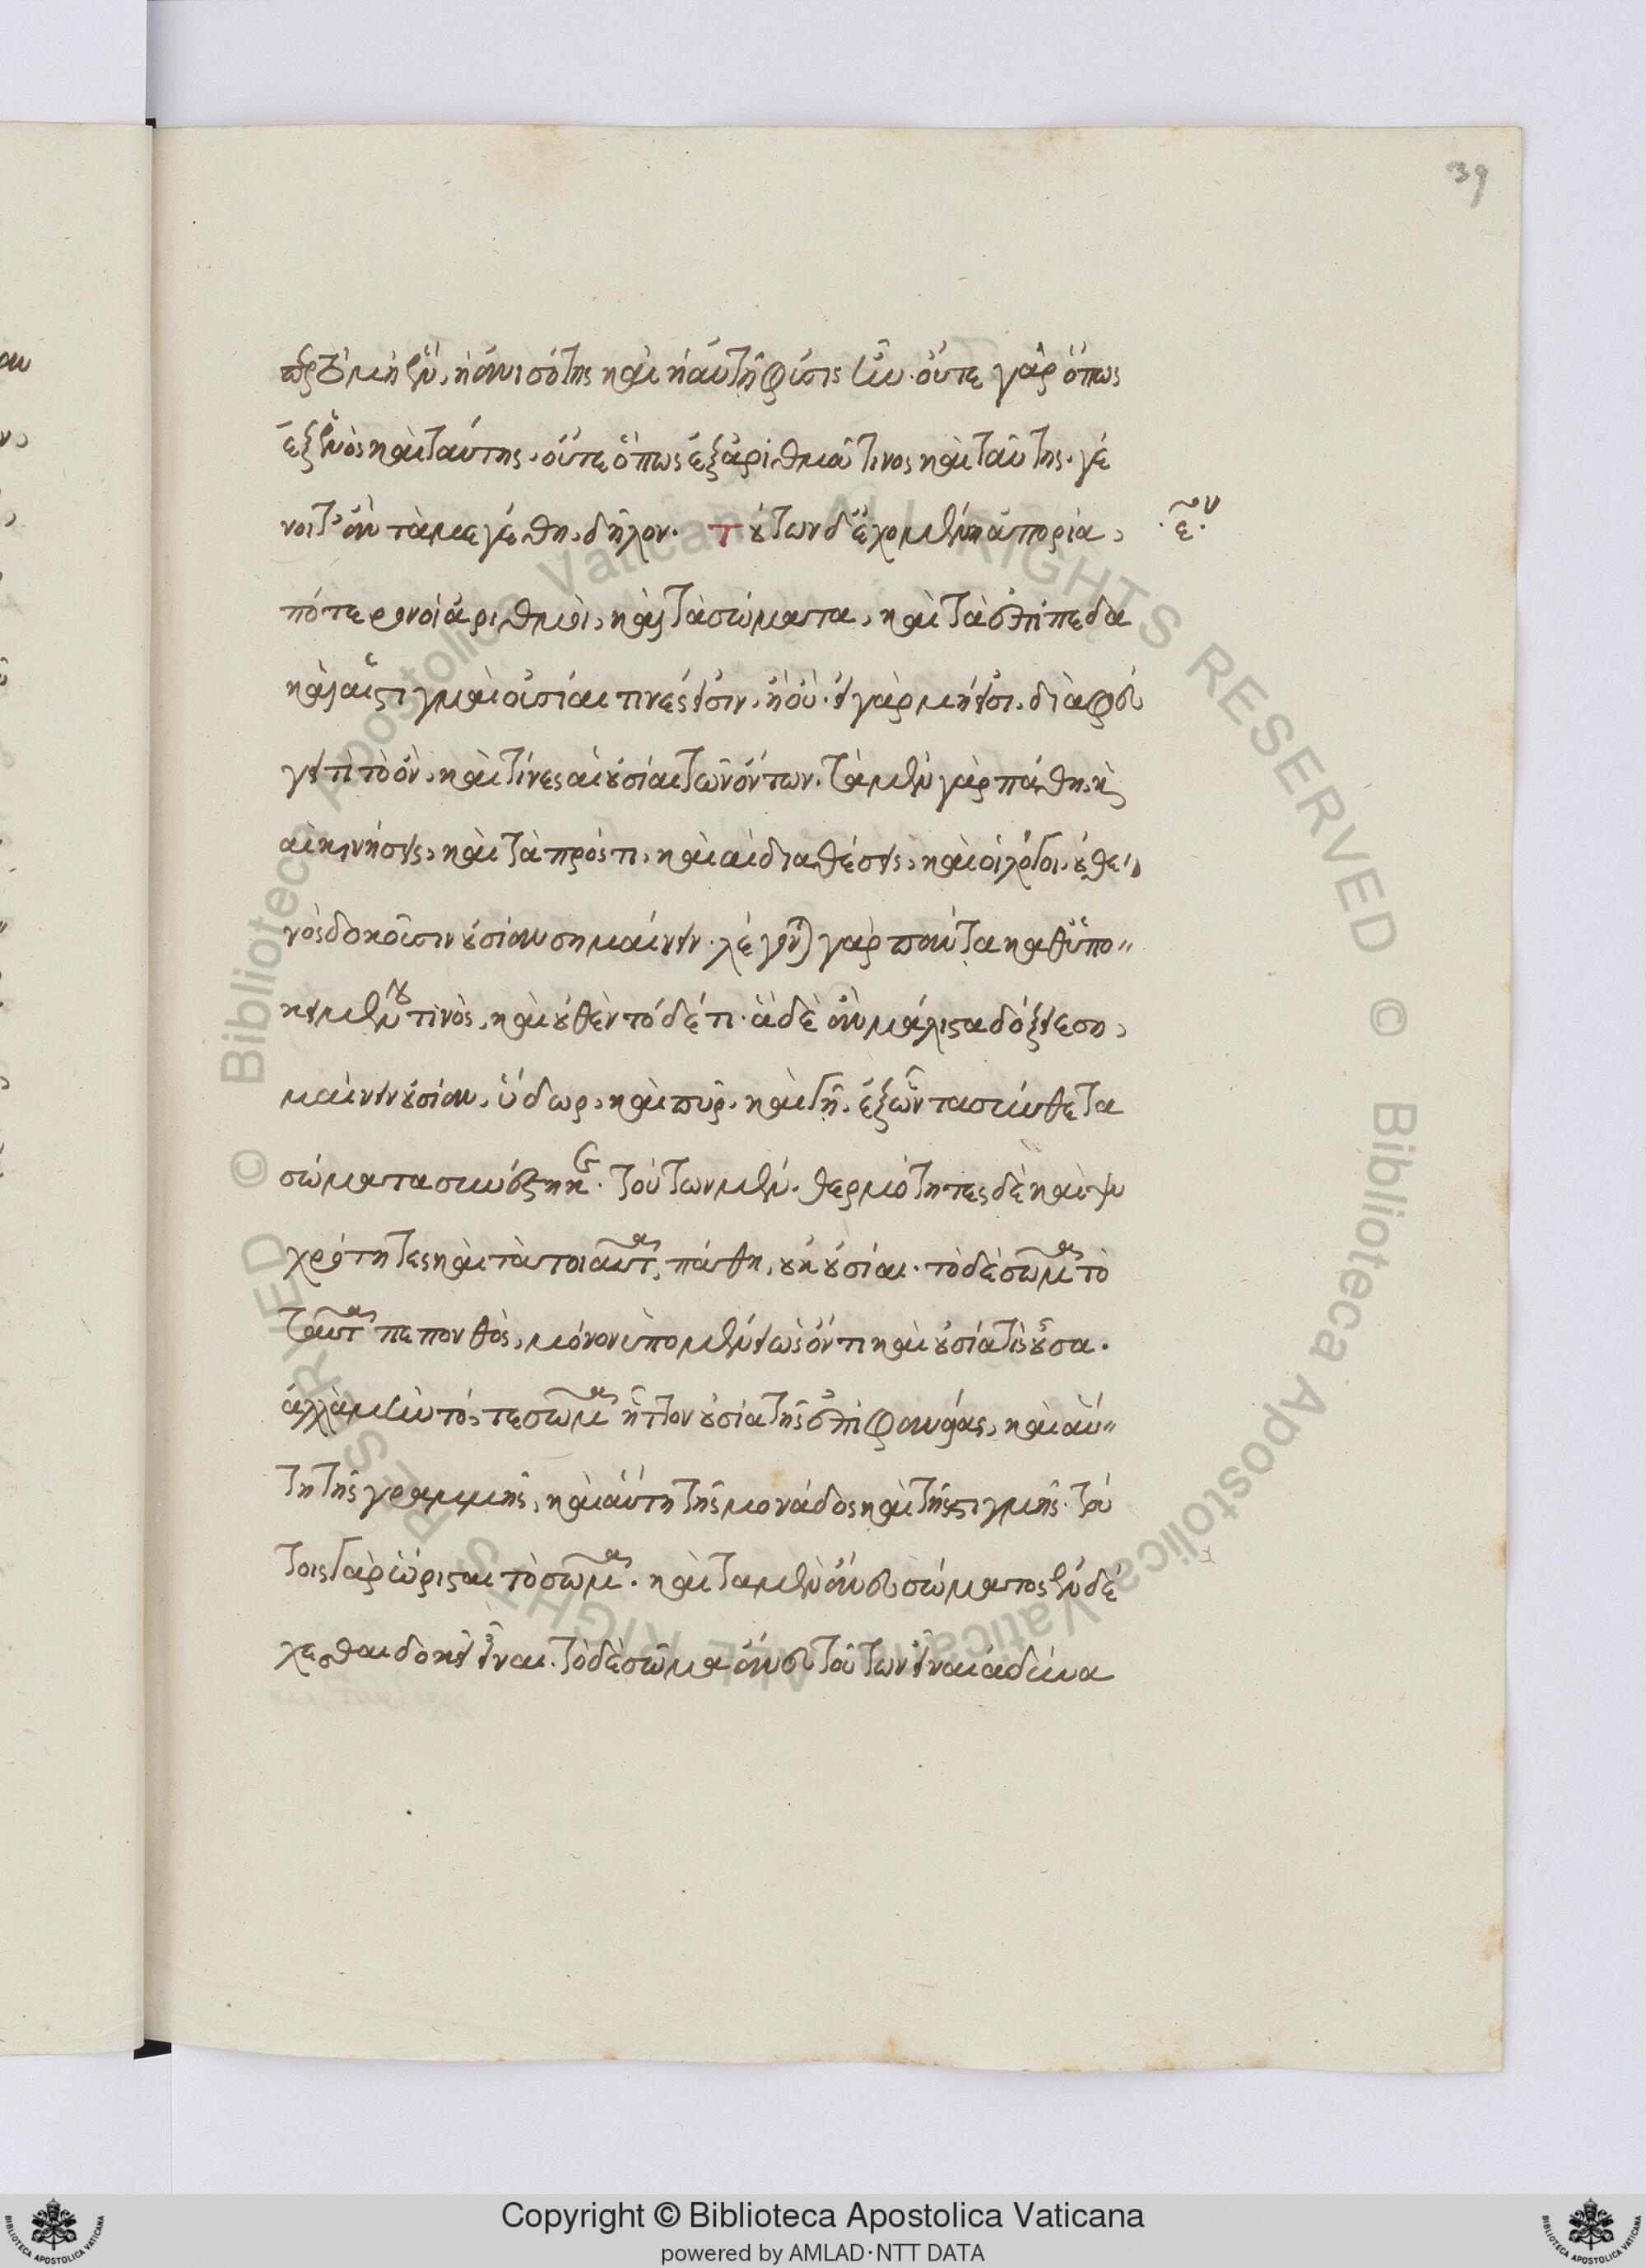 39
περ τὸ μὴ ἓν, ἡ ἀνισότης καὶ ἡ αὐτὴ φύσις ἦν. οὔτε γὰρ ὅπως
ἐξ ἑνὸς καὶ ταύτης. οὔτε ὅπως ἐξ ἀριθμοῦ τινος καὶ ταύτης. γέ
νοιτ' ἂν τὰ μεγέθη, δῆλον. τούτων δ' ἐχομένη ἀπορία,
.ε.ν
πότερον οἱ ἀριθμοὶ, καὶ τὰ σώματα, καὶ τὰ ἐπίπεδα
καὶ αἱ στιγμαὶ οὐσίαι τινές εἰσιν, ἢ οὔ. εἰ γὰρ μή εἰσι, διαφεύ
γει τί τὸ ὂν, καὶ τίνες αἱ οὐσίαι τῶν ὄντων. τὰ μὲν γὰρ πάθη, καὶ
αἱ κινήσεις, καὶ τὰ πρός τι, καὶ αἱ διαθέσεις, καὶ οἱ λόγοι, οὐθε
νὸς δοκοῦσιν οὐσίαν σημαίνειν. λέγονται γὰρ πάντα καθ' ὑπο
κειμένου τινὸς, καὶ οὐθὲν τόδε τι. ἃ δὲ ἂν μάλιστα δόξειε ση
μαίνειν οὐσίαν, ὕδωρ, καὶ πῦρ, καὶ γῆ, ἐξ ὧν τὰ σύνθετα
σώματα συνέστηκε. τούτων μὲν, θερμότητες δὲ καὶ ψυ
χρότητες καὶ τὰ τοιαῦτα, πάθη, οὐκ οὐσίαι. τὸ δὲ σῶμα τὸ
ταῦτα πεπονθὸς, μόνον ὑπομένει ὡς ὄν τι καὶ οὐσία τις οὖσα.
ἀλλὰ μὴν τό, τε σῶμα ἧττον οὐσία τῆς ἐπιφανείας, καὶ αὕ
τη τῆς γραμμῆς, καὶ αὕτη τῆς μονάδος καὶ τῆς στιγμῆς. τού
τοις γὰρ ὥρισται τὸ σῶμα. καὶ τὰ μὲν ἄνευ σώματος ἐνδέ
χεσθαι δοκεῖ εἶναι. τὸ δὲ σῶμα ἄνευ τούτων εἶναι ἀδύνα
Copyright © Biblioteca Apostolica Vaticana
powered by AMLAD·NTT DATA